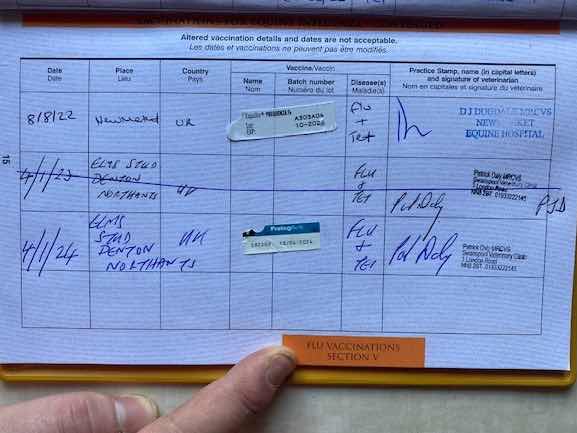 VACCINATIONS FOR EQUINE INFLUENZA
Altered vaccination details and dates are not acceptable.
Les dates et vaccinations ne peuvent pas être modifiés.
Date
Date
Place
Lieu
Country
Pays
Vaccine/Vaccin
Name
Nom
Batch number
Numéro du lot
Disease(s)
Maladie(s)
Practice Stamp, name (in capital letters)
and signature of veterinarian
Nom en capitales et signature du vétérinaire
8/8/22 Newmarket UK
A303A04
10-2024
Flu
+
Tet
D J DUGDALE MRCVS
NEWMARKET
EQUINE HOSPITAL
15
4/1/23
ELMS STUD
DENTON
NORTHANTS
UK
FLU
&
TET
Pat Daly
Patrick Daly MRCVS
Swanspool Veterinary Clinic
1 London Road
NN8 2BT 01933222145
PJD
4/1/24
ELMS
STUD
DENTON
NORTHANTS
UK
ProteqFlu
FLU
+
TET
Pat Daly
Patrick Daly MRCVS
Swanspool Veterinary Clinic
1 London Road
NN8 2BT 01933222145
FLU VACCINATIONS
SECTION V